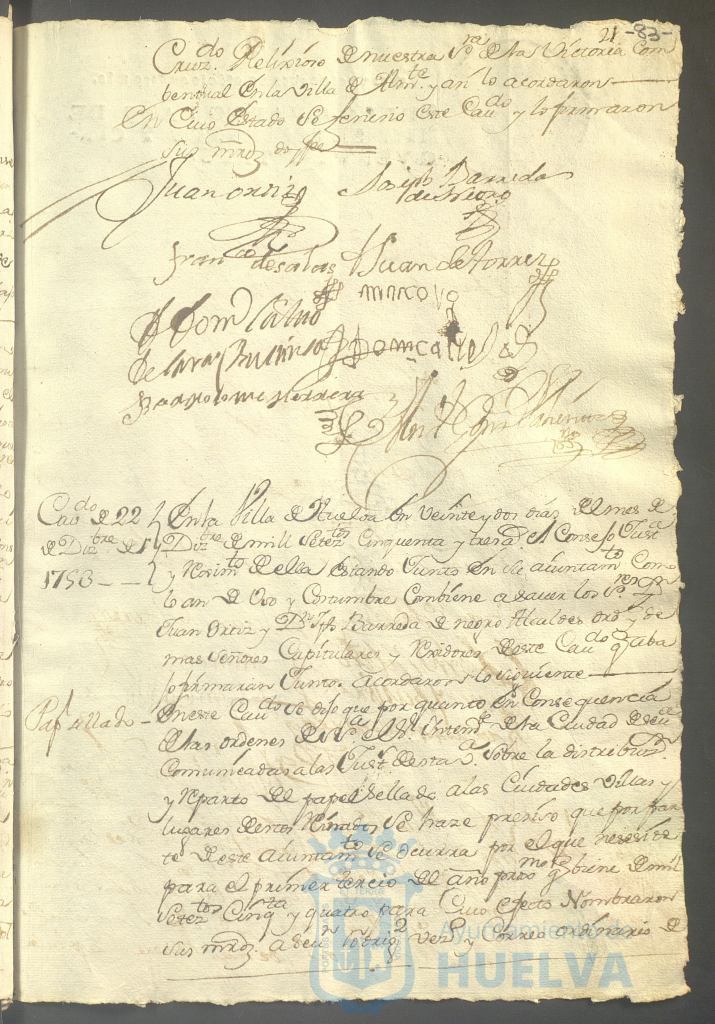 21 -83-
Cruz. Relixioso de nuestra Sra de la Victoria Com
bentual en la Villa de Almte y asi lo acordaron
En Cuio estado se feneció este Cavdo y lo firmaron
sus mrdz doy fee
Juan ortiz Joseph Barreda
de Negro
Franco de salas Juan de torrez
Domingo
Bartolome Herrera
Cavdo de 22 En la Villa de Huelva en veinte y dos dias del mes de
de Dizbre de Dizre de mill Setetos Cinquenta y tres as. el Consejo Justa
1753 y Reximto de ella estando Juntos en su aiuntamto Como
lo an de Uso y Costumbre Combiene a saver los Sres Dn
Juan Ortiz y Dn Jph Barreda de negro Alcaldes ordos y de
mas Señores Capitulares y Rexidores de este Cavdo q aba
jo firmaran Juntos acordaron lo siguiente
Papl sellado En este Cavdo se dijo que por quanto en Consequencia
de las ordenes del Sr Intendte de la Ciudad de Seva
Comunicadas a las Justas de esta Va sobre la distribuzn
y Reparto del papel Sellado a las Ciudades Villas y
lugares de estos Reinados se haze preciso que por par
te de este aiuntamto se ocurra por el que nesesite
para el primer tercio del año proximo q biene de mil
Setetos Cinqta y quatro para Cuio efecto Nombraron
sus mrdz a Rodrigz Vezo y Correo ordinario de
Ayuntamiento de
HUELVA